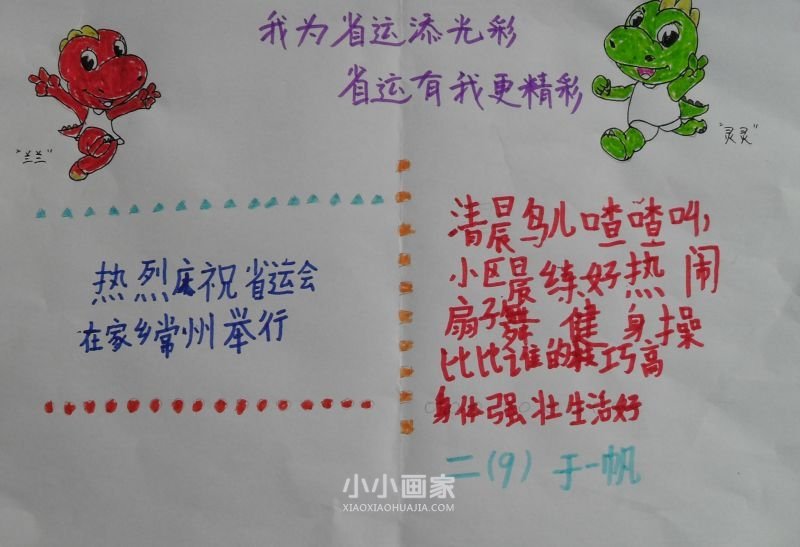 我为省运添光彩
省运有我更精彩
"兰兰"
"灵灵"
热烈庆祝省运会
在家乡常州举行
清晨鸟儿喳喳叫,
小区晨练好热闹
扇子舞 健身操
比比谁的技巧高
身体强壮生活好
二(9) 于一帆
小小画家
XIAOXIAOHUAJIA.COM